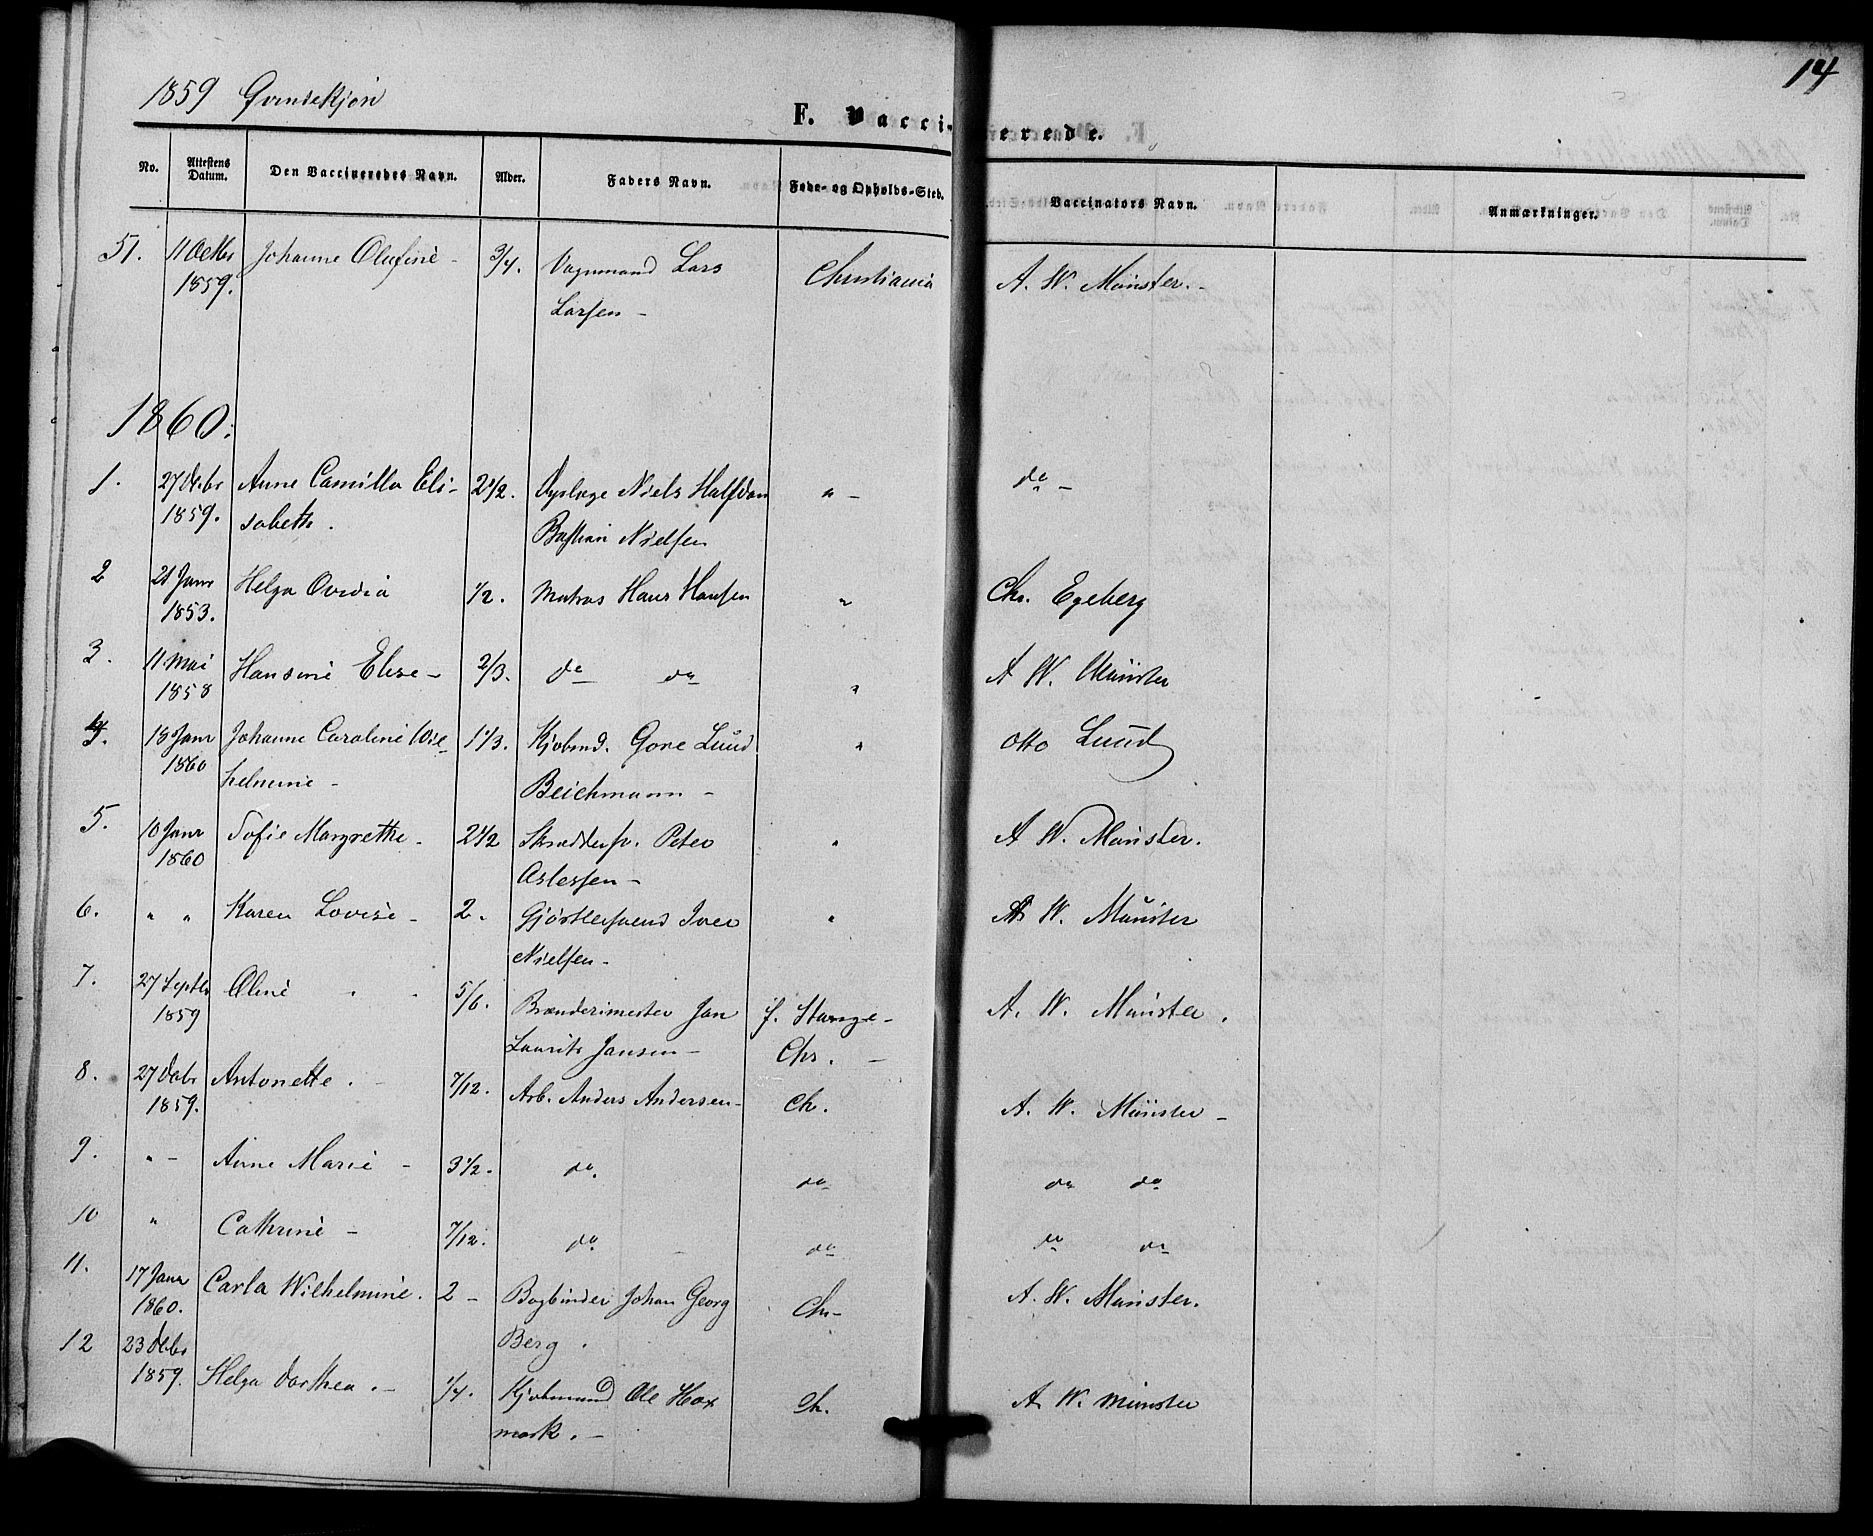 14
1859 Qvindekjøn
F. Vaccinerede.
No. Attestens Datum. Den Vaccineredes Navn. Alder. Faders Navn. Føde- og Opholds-Sted. Vaccinators Navn. Anmærkninger.
51. 11 Octbr Johanne Olufine - 3/4. Vognmand Lars Christiania A. W. Münster. -
1859. Larsen -
1860.
1. 27 Decbr Anne Camilla Eli- 2 1/2. Niels Halfdan " - do -
1859. sabeth. Bastian Nielsen
2 21 Janr Helga Ovidia 1/2. Matros Hans Hansen " Chr. Egeberg
1853.
3. 11 Mai Hansine Elise - 2/3. do do " A W. Münster
1858
4. 13 Janr Johanne Caroline Wil- 1 1/3. Kjøbmd. Gore Lund " Otto Lund
1860 helmine - Beichmann -
5. 10 Janr Sofie Margrethe. 2 1/2 Skræddersv. Peter " A W. Münster.
1860 Aslesen -
6. " " Karen Lovise - 2. Gjørtlersvend Iver " A W. Münster
Nielsen -
7. 27 Septbr Oline 5/6. Brænderimester Jan f. Stange - A. W. Münster.
1859 Laurits Jansen - Chr. -
8. 27 Decbr Antonette. - 7/12. Arb. Anders Andersen - Ch. A. W. Münster -
1859.
9. " - Anne Marie - 3 1/2. do. do do do
10 " Cathrine - 7/12. do - do do do
11. 17 Janr Carla Wilhelmine. 2 - Bogbinder Johan Georg Chr- A. W. Münster.
1860. Berg.
12 23 Decbr Helga Dorthea. - 1/4. Kjøbmand Ole Hax Ch. A. W. Münster
1859. mark. -